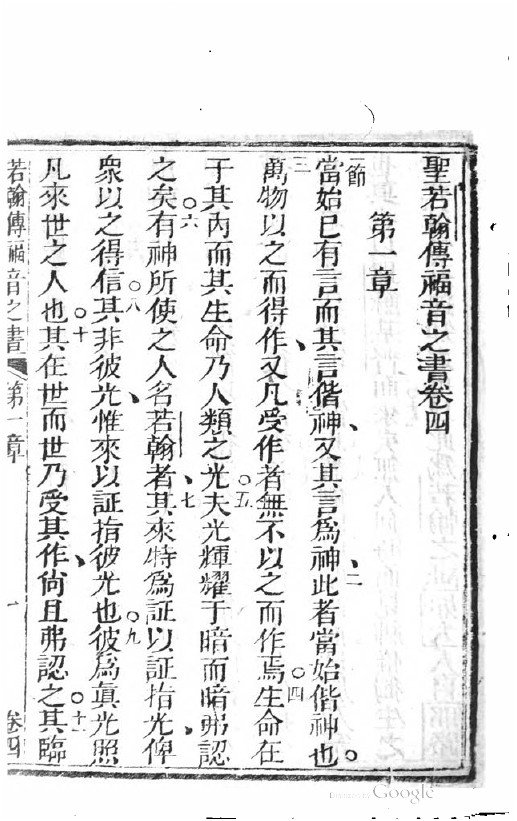 聖若翰傳福音之書卷四
第一章
一節當始已有言而其言偕神又其言為神二此者當始偕神也。
三萬物以之而得作又凡受作者無不以之而作焉四生命在
于其內而其生命乃人類之光五夫光輝耀于暗而暗弗認
之矣六有神所使之人名若翰者七其來特為証以証指光俾
衆以之得信八其非彼光惟來以証指彼光也九彼為眞光照
凡來世之人也十其在世而世乃受其作尚且弗認之十一其臨
若翰傳福音之書 第一章 一 卷四
Digitized by Google